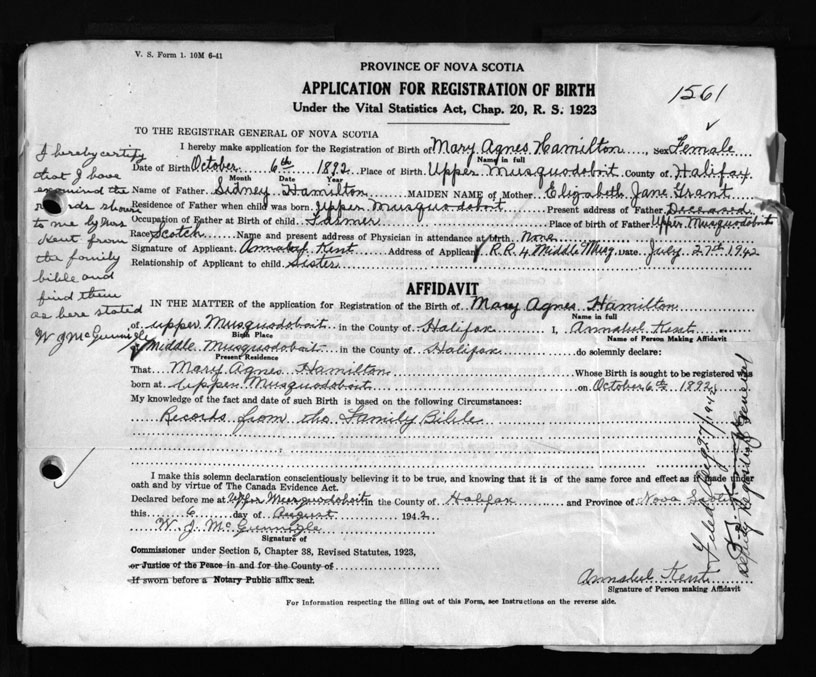 V. S. Form 1. 10M 6-41
PROVINCE OF NOVA SCOTIA
APPLICATION FOR REGISTRATION OF BIRTH
Under the Vital Statistics Act, Chap. 20, R. S. 1923
1561
TO THE REGISTRAR GENERAL OF NOVA SCOTIA
I hereby make application for the Registration of Birth of Mary Agnes Hamilton Sex Female
Name in full
Date of Birth October 6th 1892 Place of Birth Upper Musquodoboit County of Halifax
Month Date Year
Name of Father Sidney Hamilton MAIDEN NAME of Mother Elizabeth Jane Grant
Residence of Father when child was born Upper Musquodoboit Present address of Father Deceased
Occupation of Father at Birth of child Farmer Place of birth of Father Upper Musquodoboit
Race Scotch Name and present address of Physician in attendance at birth None
Signature of Applicant Annabel Kent Address of Applicant R.R. 4 Middle Musq. Date July 27th 1942
Relationship of Applicant to child Sister
I hereby certify
that I have
examined the
records shown
to me by Mrs
Kent from
the family
bible and
find them
as here stated
W J McGunnigle
AFFIDAVIT
IN THE MATTER of the application for Registration of the Birth of Mary Agnes Hamilton
Name in full
of upper Musquodoboit in the County of Halifax I, Annabel Kent
Birth Place Name of Person Making Affidavit
of Middle Musquodoboit in the County of Halifax do solemnly declare:
Present Residence
That Mary Agnes Hamilton Whose Birth is sought to be registered was
born at Upper Musquodoboit on October 6th 1892
My knowledge of the fact and date of such Birth is based on the following Circumstances:
Records from the Family Bible
I make this solemn declaration conscientiously believing it to be true, and knowing that it is of the same force and effect as if made under
oath and by virtue of The Canada Evidence Act.
Declared before me at Upper Musquodoboit in the County of Halifax and Province of Nova Scotia
this 6 day of August 1942
W. J. McGunnigle
Signature of
Commissioner under Section 5, Chapter 38, Revised Statutes, 1923,
or Justice of the Peace in and for the County of
If sworn before a Notary Public affix seal.
Annabel Kent
Signature of Person making Affidavit
Filed Aug 27/1942
Deputy Registrar General
For Information respecting the filling out of this Form, see Instructions on the reverse side.